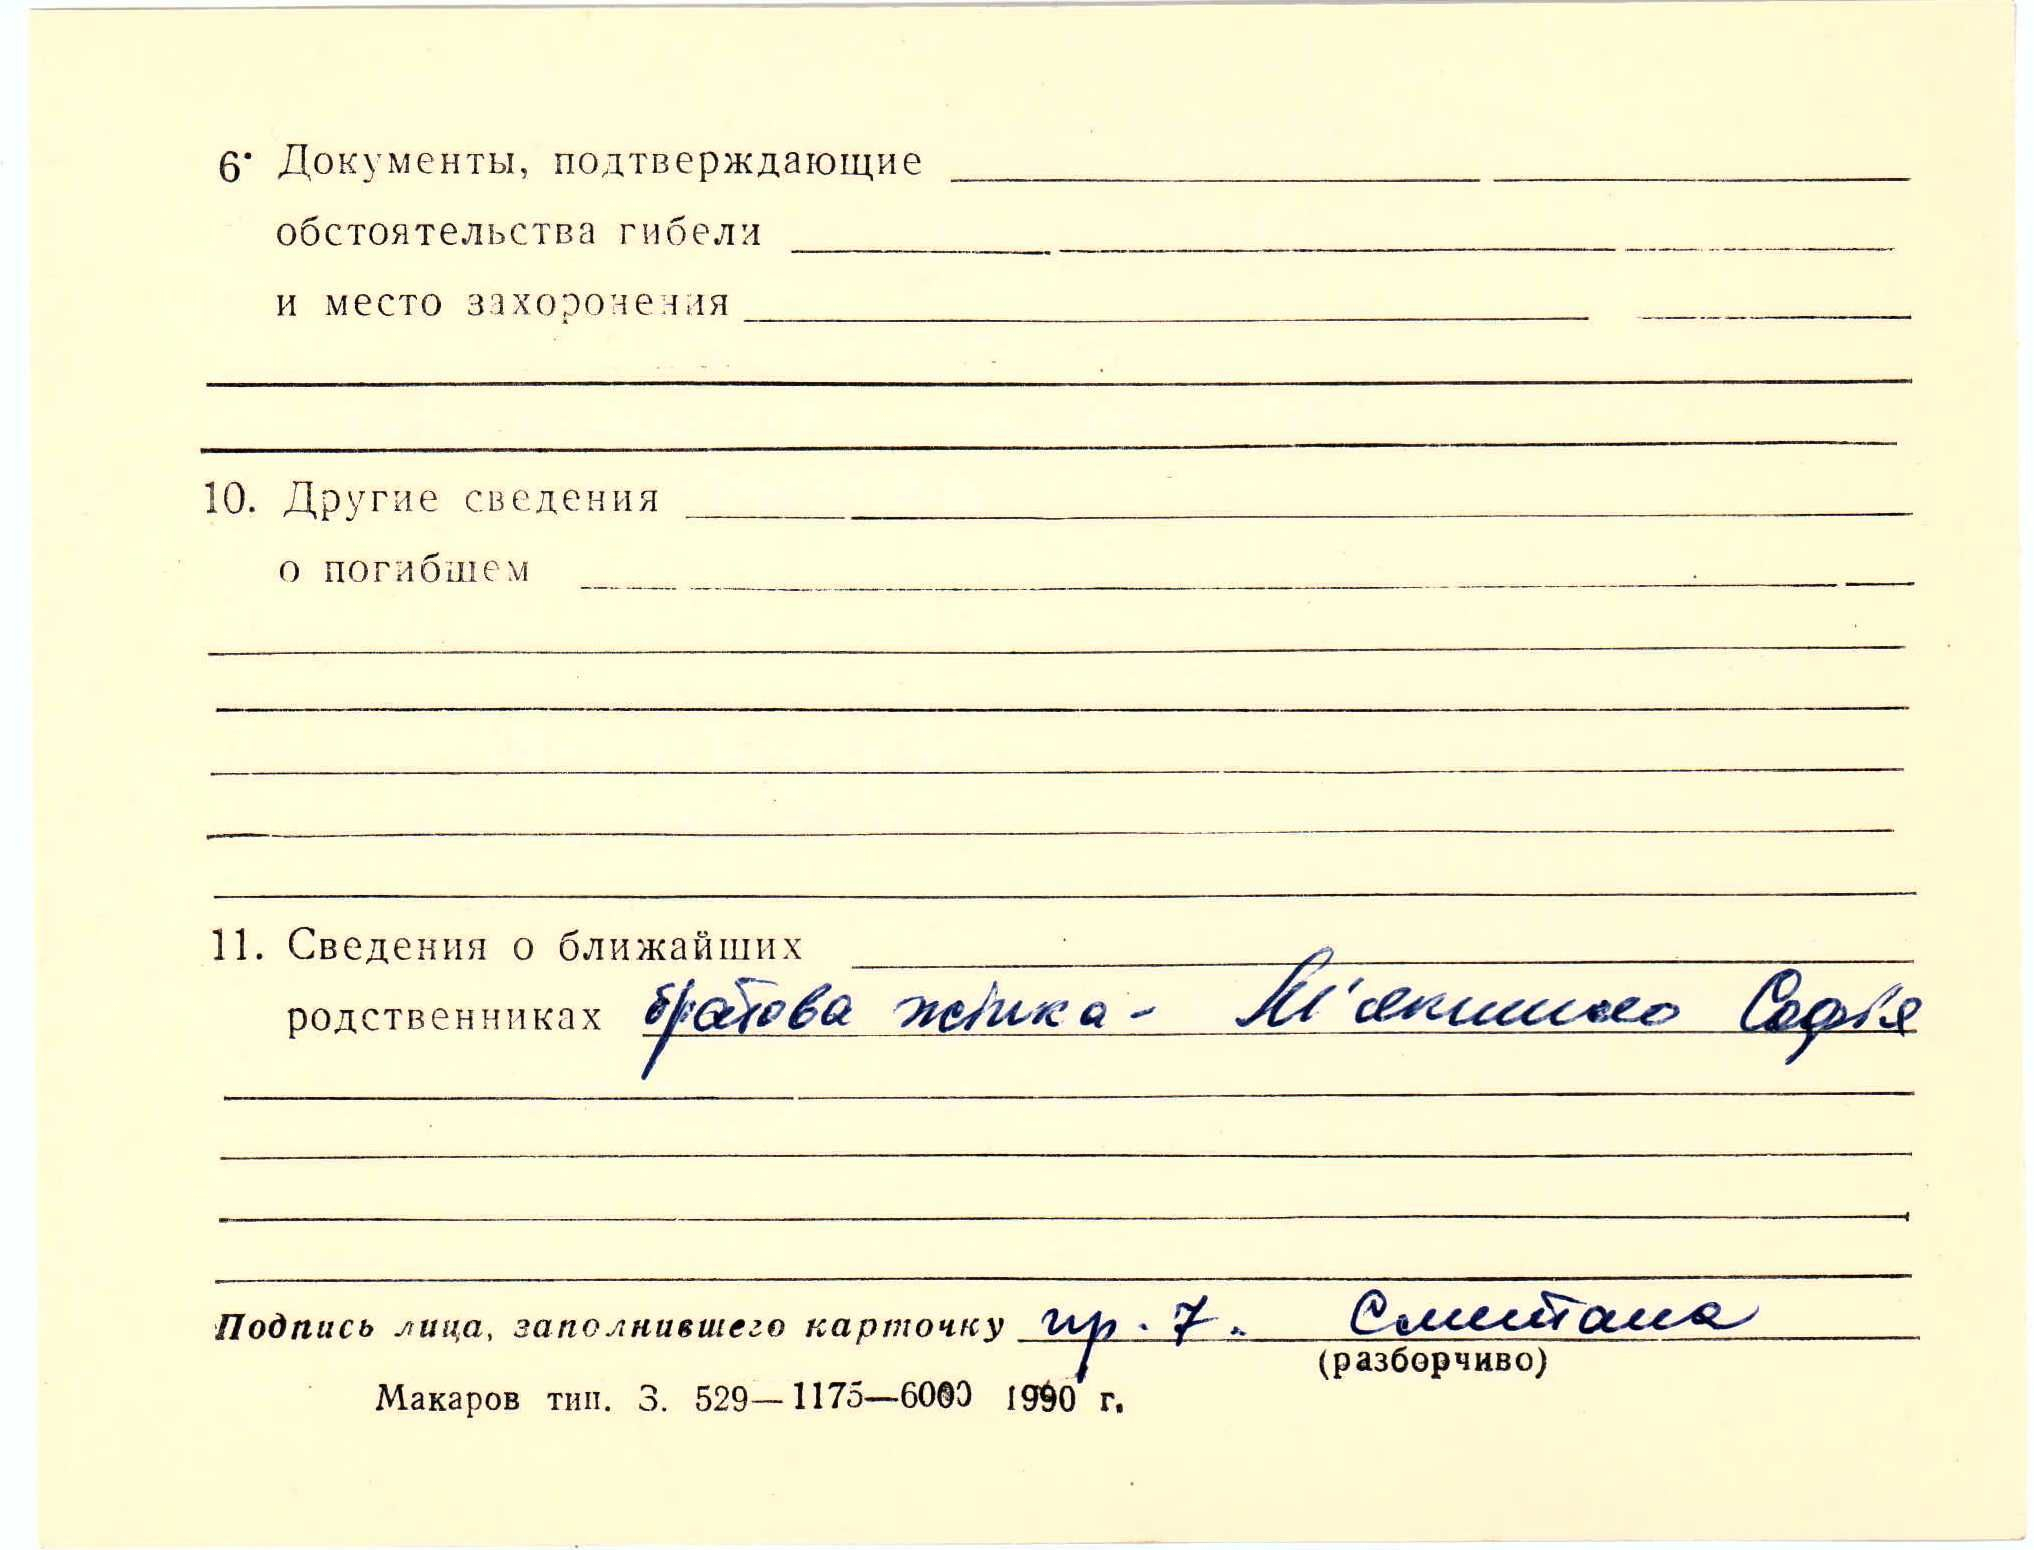 6. Документы, подтверждающие
обстоятельства гибели
и место захоронения
10. Другие сведения
о погибшем
11. Сведения о ближайших
родственниках братова жінка - М'якишко Софія
Подпись лица, заполнившего карточку гр. 7. Сметана
(разборчиво)
Макаров тип. З. 529—1175—6000 1990 г.